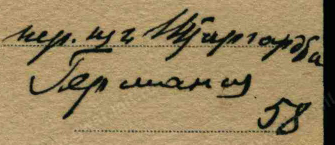 пер. из г. Штаргарда
Германия
58